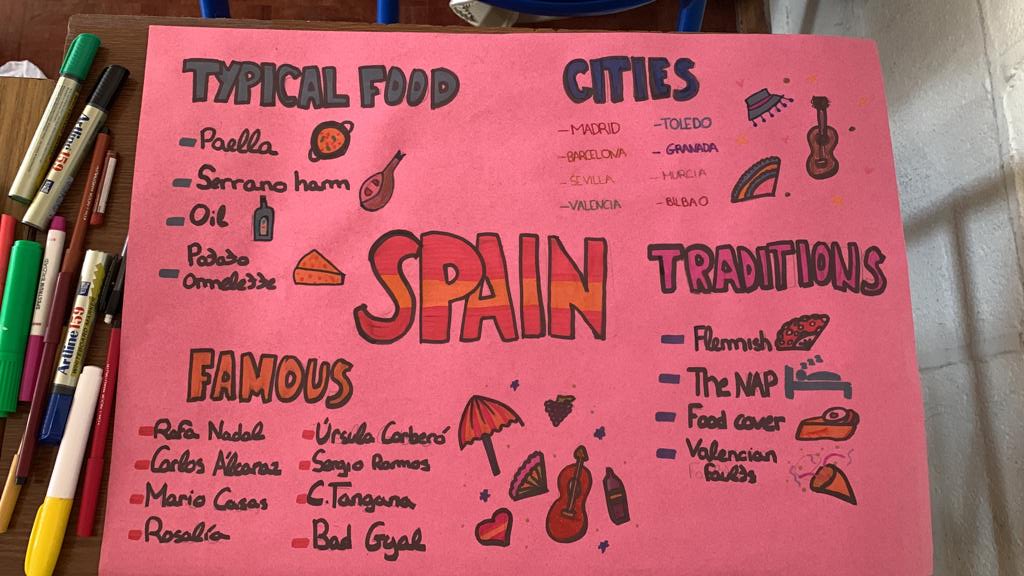 TYPICAL FOOD
- Paella
- Serrano ham
- Oil
- Potato
Ommelette
CITIES
- MADRID
- BARCELONA
- SEVILLA
- VALENCIA
- TOLEDO
- GRANADA
- MURCIA
- BILBAO
SPAIN
TRADITIONS
- Flemish
- The NAP
- Food cover
- Valencian
faults
FAMOUS
- Rafa Nadal
- Carlos Alcaraz
- Mario Casas
- Rosalía
- Úrsula Corberó
- Sergio Ramos
- C.Tangana
- Bad Gyal
Artline 159
Artline 159